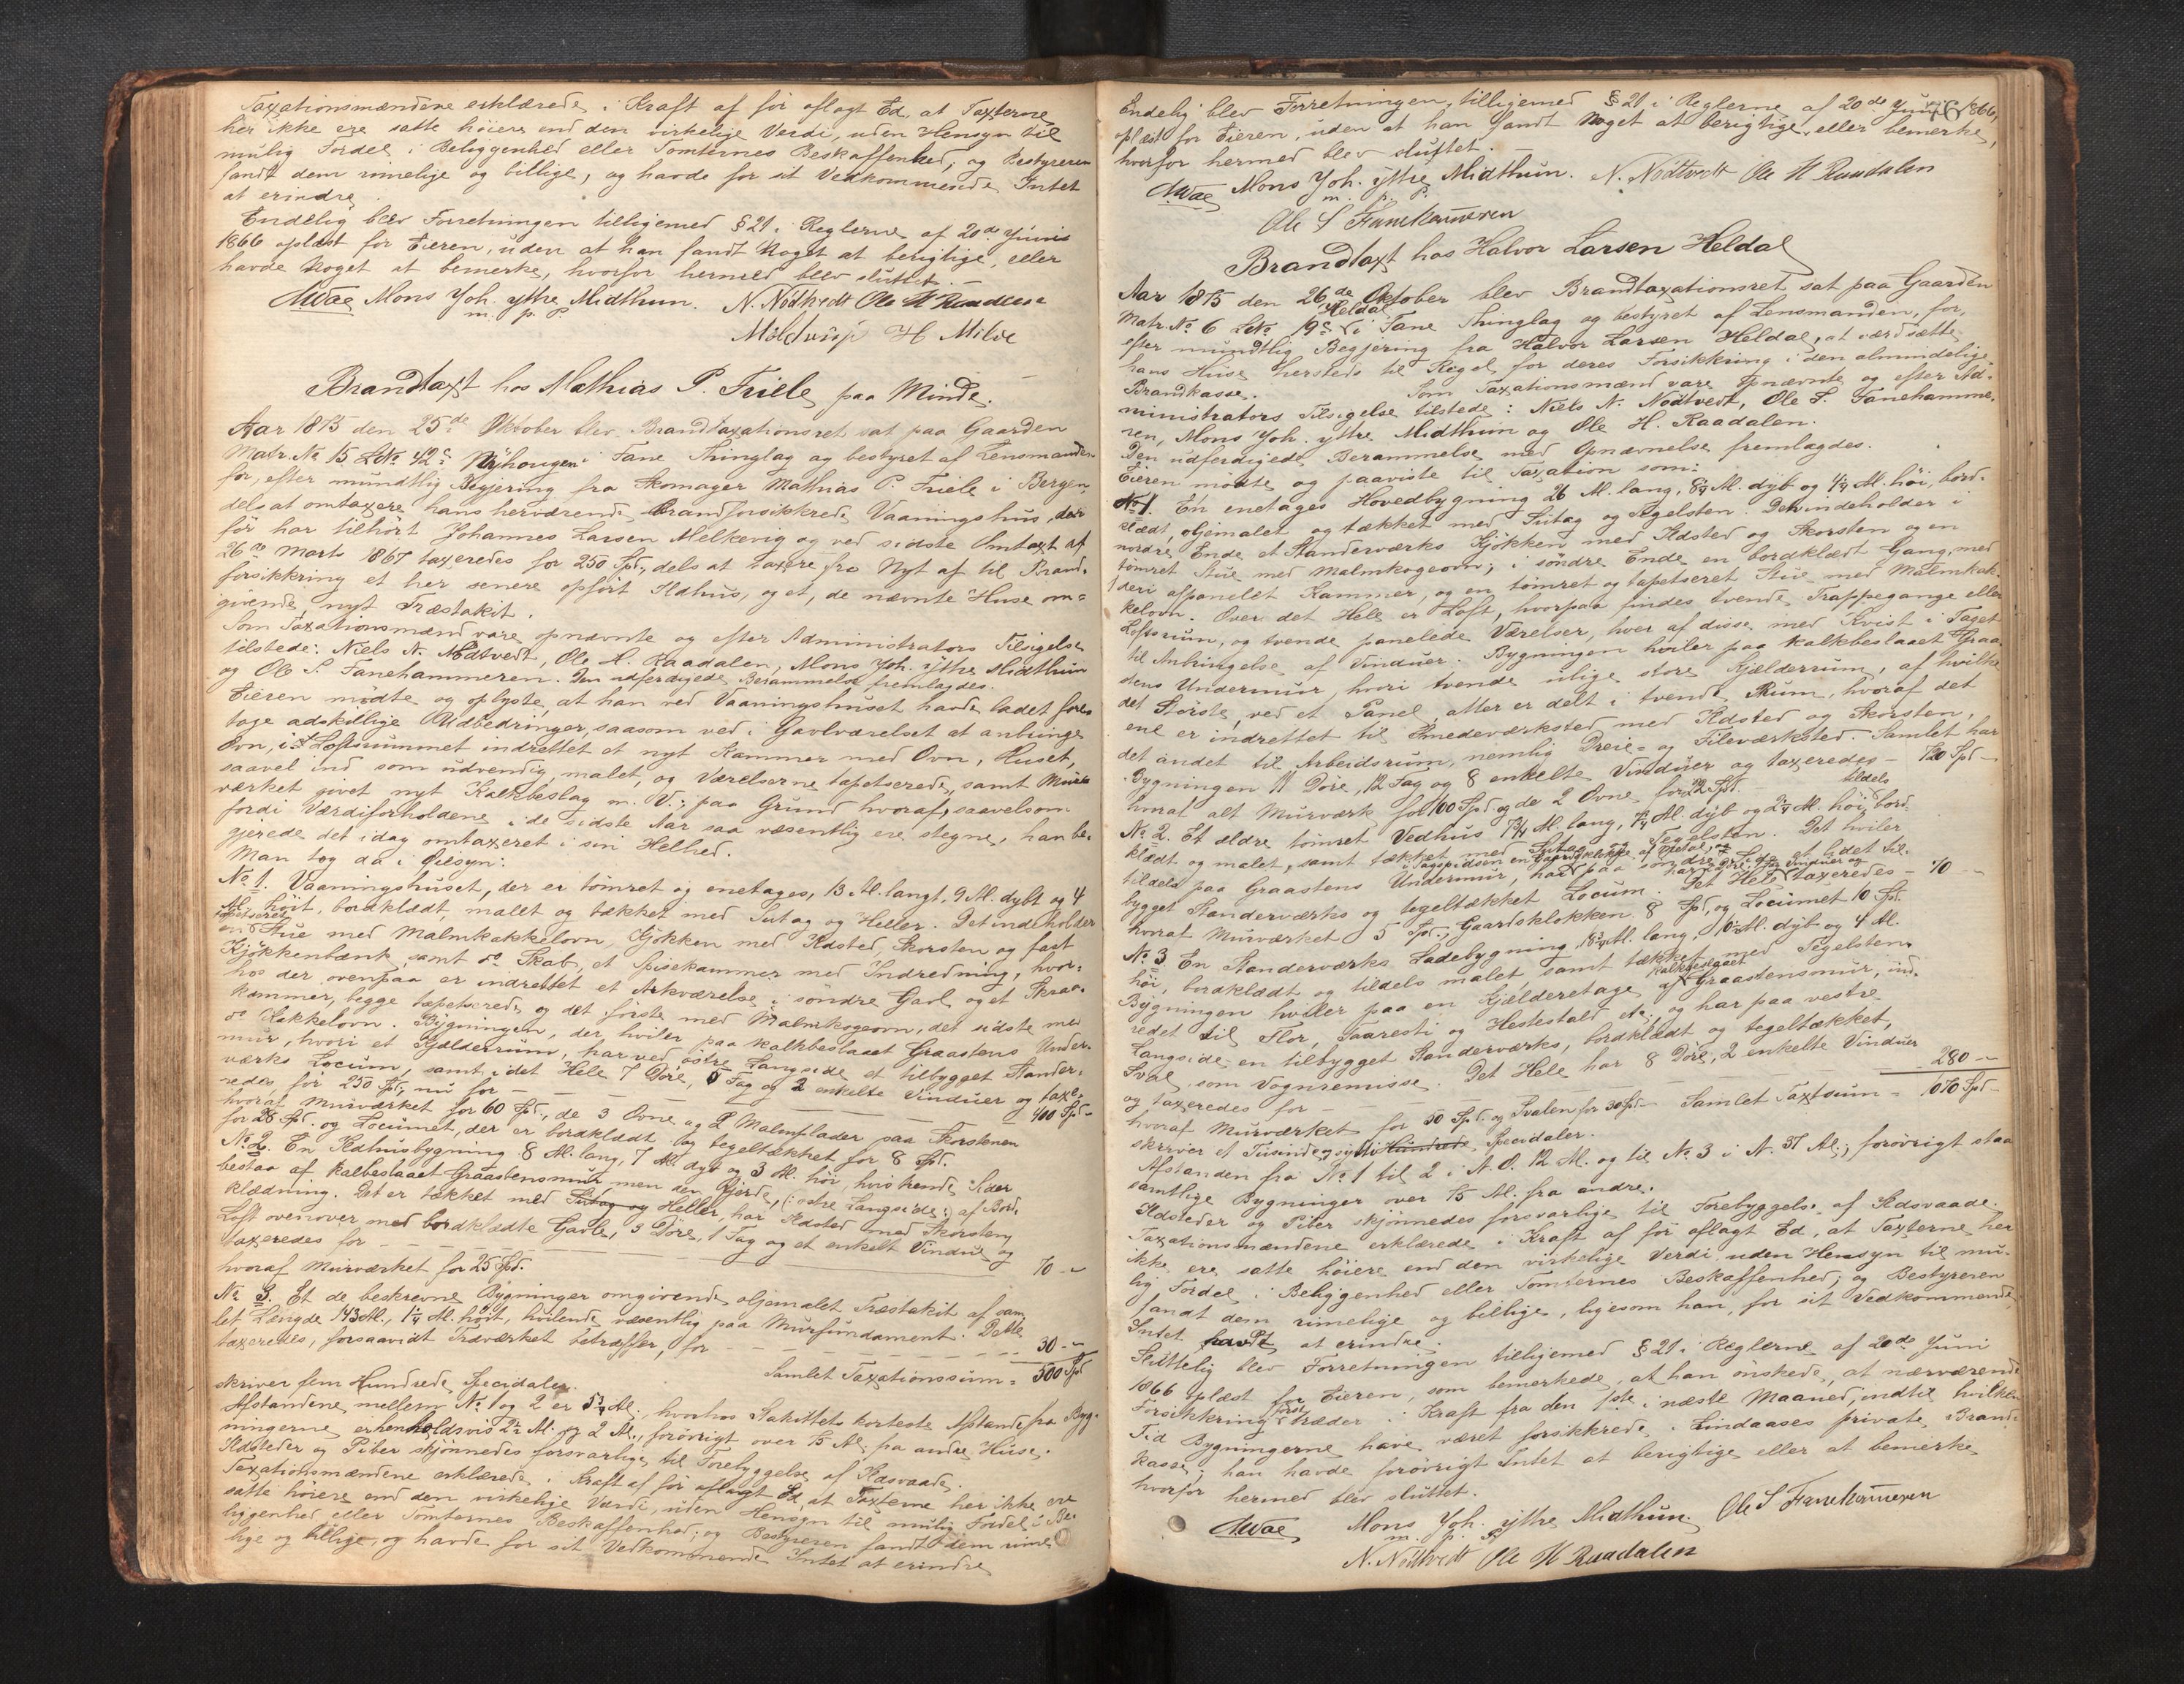 Taxationsmændene erklærede i Kraft af før aflagt Ed, at Taxterne
her ikke ere satte høiere end den virkelige Verdi, uden Hensyn til
mulig Fordel i Beliggenhed eller Tomternes Beskaffenhed; og Bestyreren
fandt dem rimelige og billige, og havde for sit Vedkommende Intet
at erindre.
Endelig blev Forretningen tilligemed § 21 i Reglerne af 20de Junii
1866 oplæst for Eieren, uden at han fandt Noget at berigtige, eller
havde Noget at bemerke, hvorfor hermed blev sluttet. —
Mons Joh. yttre Midthun. N. Nödtvedt Ole H Raadalen
m. p. P.
H Milde
Brandtaxt hos Mathias P. Friele paa Minde.
Aar 1875 den 25de Oktober blev Brandtaxationsret sat paa Gaarden
Matr. No 15 LNo 42c Nyhougen i Fane Thinglag og bestyret af Lensmanden
for, efter mundtlig Begjering fra Skomager Mathias P. Friele i Bergen,
dels at omtaxere hans herværende brandforsikkrede Vaaningshus, der
før har tilhørt Johannes Larsen Melkevig og ved sidste Omtaxt af
26de Marts 1867 taxeredes for 250 Spd., dels at taxere fra Nyt af til Brand-
forsikkring et her senere opført Ildhus, og et, de nævnte Huse om-
givende, nyt Træstakit.
Som Taxationsmænd vare opnævnte og efter Administrators Tilsigelse
tilstede: Niels N. Nödtvedt, Ole H. Raadalen, Mons Joh. yttre Midthun
og Ole S. Fanehammeren. Den udferdigede Berammelse fremlagdes.
Eieren mødte og oplyste, at han ved Vaaningshuset havde ladet fore-
tage adskillige Udbedringer, saasom ved i Gavlværelset at anbringe
Ovn, i Loftsrummet indrettet et nyt Kammer med Ovn, Huset,
saavel ind som udvendig, malet, og Værelserne tapetserede, samt Muur-
værket givet nyt Kalkbeslag m. V.; paa Grund hvoraf, saavelsom
fordi Værdiforholdene i de sidste Aar saa væsentlig ere stegne, han be-
gjerede det idag omtaxeret i sin Helhed.
Man tog da i Øiesyn:
No 1. Vaaningshuset, der er tömret og enetages, 13 Al. langt, 9 Al. dybt og 4
Al. høit, bordklædt, malet og tækket med Sutag og Heller. Det indeholder
tapetseret
en Stue med Malmkakkelovn, Kjøkken med Ildsted, Skorsten og fast
Kjøkkenbænk, samt do Skab, et Spisekammer med Indredning, hvor-
hos der ovenpaa er indrettet et Arkværelse i søndre Gavl, og et Skraa-
kammer, begge tapetserede og det første med Malmkogeovn, det sidste med
do Kakkelovn. Bygningen, der hviler paa kalkbeslaaet Graastens Under-
mur, hvori et Kjælderrum, har ved østre Langside et tilbygget Stander-
værks Locum, samt i det Hele 7 Døre, 6 Fag og 2 enkelte Vinduer og taxe-
redes før 250 Spd., nu for — — — — 400 Spd —
hvoraf Murværket for 60 Spd., de 3 Ovne og 2 Malmplader paa Skorstenen
for 28 Spd. og Locumet, der er bordklædt og tegeltækket for 8 Spd.
No 2. En Ildhusbygning 8 Al. lang, 7 Al. dyb og 3 Al. høi, hvis trende Sider
bestaa af kalkbeslaaet Graastensmur men den fjerde, (: østre Langside :) af Bord-
klædning. Det er tækket med Sutag og Heller, har Ildsted med Skorsten,
Loft ovenover med bordklædte Gavle, 3 Døre, 1 Fag og et enkelt Vindue og
taxeredes for — — — — 70 —
hvoraf Murværket for 25 Spd.
No 3. Et de beskrevne Bygninger omgivende oljemalet Træstakit af sam-
let Længde 143 Al., 1¼ Al. høit, hvilende væsentlig paa Murfundament. Dette
taxeredes, forsaavidt Træværket betræffer, for — — — 30 —
Samlet Taxationssum = 500 Spd
skriver fem Hundrede Speciedaler.
Afstandene mellem No 1 og 2 er 5¾ Al., hvorhos Stakittets korteste Afstande fra Byg-
ningerne er henholdsvis 2½ Al. og 2 Al., forøvrigt over 15 Al. fra andre Huse.
Ildsteder og Piber skjønnedes forsvarlige til Forebyggelse af Ildsvaade.
Taxationsmændene erklærede i Kraft af før aflagt Ed, at Taxterne her ikke ere
satte høiere end den virkelige Verdi, uden Hensyn til mulig Fordel i Be-
liggenhed eller Tomternes Beskaffenhed; og Bestyreren fandt dem rime-
lige og billige, og havde for sit Vedkommende Intet at erindre.
Endelig blev Forretningen, tilligemed § 21 i Reglerne af 20de Juni 1866,
oplæst for Eieren, uden at han fandt Noget at berigtige, eller bemerke,
hvorfor hermed blev sluttet. —
Mons Joh. yttre Midthun. N. Nödtvedt Ole H Raadalen
m. p. P.
Ole S Fanehammeren
Brandtaxt hos Halvor Larsen Heldal
Aar 1875 den 26de Oktober blev Brandtaxationsret sat paa Gaarden
Heldal
Matr. No 6 LNo 19c i Fane Thinglag og bestyret af Lensmanden, for,
efter mundtlig Begjering fra Halvor Larsen Heldal, at værdsætte
hans Huse hersteds til Regel for deres Forsikkring i den almindelige
Brandkasse. Som Taxationsmænd vare opnævnte og efter Ad-
ministrators Tilsigelse tilstede: Niels N. Nödtvedt, Ole S. Fanehamme-
ren, Mons Joh. yttre Midthun og Ole H. Raadalen.
Den udferdigede Berammelse med Opnævnelse fremlagdes.
Eieren mødte og paaviste til Taxation som:
No 1. En enetages Hovedbygning 26 Al. lang, 8¼ Al. dyb og 4¼ Al. høi, bord-
klædt, oljemalet og tækket med Sutag og Tegelsten. Den indeholder i
nordre Ende et Standerværks Kjøkken med Ildsted og Skorsten og en
tömret Stue med Malmkogeovn; i søndre Ende en bordklædt Gang, med
deri afpanelet Kammer, og en tömret og tapetseret Stue med Malmkak-
kelovn. Over det Hele er Loft, hvorpaa findes tvende Trappegange eller
Loftsrum, og tvende panelede Værelser, hver af disse med Kvist i Taget
til Anbringelse af Vinduer. Bygningen hviler paa kalkbeslaaet Graa-
stens Undermur, hvori tvende ulige store Kjælderrum, af hvilke
det Største, ved et Panel, atter er delt i tvende Rum, hvoraf det
ene er indrettet til Smedeværksted med Ildsted og Skorsten,
det andet til Arbeidsrum, nemlig Dreie- og Fileværksted. Samlet har
Bygningen 11 Døre, 12 Fag og 8 enkelte Vinduer og taxeredes — 720 Spd —
hvoraf alt Murværk for 100 Spd og de 2 Ovne for 22 Spd.
tildels
No 2. Et ældre tömret Vedhus 7¾ Al. lang, 7¼ Al. dyb og 2¼ Al. høi, bord-
klædt og malet, samt tækket med Sutag og Tegelsten. Det hviler
tildels paa Graastens Undermur, har paa søndre Side et lidet til-
bygget Standerværks og tegeltækket Locum. Det Hele taxeredes — 70 —
hvoraf Murværket 5 Spd., Gaardsklokken 8 Spd, og Locumet 10 Spd.
No 3. En Standerværks Ladebygning 18¾ Al. lang, 10½ Al. dyb og 4 Al.
høi, bordklædt og tildels malet, samt tækket med Tegelsten.
kalkbeslaaet
Bygningen hviler paa en Kjælderetage af Graastensmur, ind-
redet til Flor, Faaresti og Hestestald etc, og har paa vestre
Langside en tilbygget Standerværks, bordklædt og tegeltækket,
Sval, som Vognremisse. Det Hele har 8 Døre, 2 enkelte Vinduer
og taxeredes for — — — — 280 —
hvoraf Murværket for 50 Spd. og Svalen for 30 Spd — Samlet Taxtsum = 1070 Spd —
skriver et Tusinde og sytti Hundrede Speciedaler.
Afstanden fra No 1 til 2 i N. O. 12 Al. og til No 3 i N. 37 Al.; forøvrigt staa
samtlige Bygninger over 15 Al. fra andre.
Ildsteder og Piber skjønnedes forsvarlige til Forebyggelse af Ildsvaade.
Taxationsmændene erklærede i Kraft af før aflagt Ed, at Taxterne her
ikke ere satte høiere end den virkelige Verdi uden Hensyn til mu-
lig Fordel i Beliggenhed eller Tomternes Beskaffenhed; og Bestyreren
fandt dem rimelige og billige, ligesom han, for sit Vedkommende,
Intet havde at erindre.
Sluttelig blev Forretningen tilligemed § 21 i Reglerne af 20de Juni
1866 oplæst for Eieren, som bemerkede, at han ønskede, at nærværende
først
Forsikkring træder i Kraft fra den 1ste i næste Maaned, indtil hvilken
Tid Bygningerne have været forsikkrede i Lindaases private Brand-
kasse; han havde forøvrigt Intet at berigtige eller at bemerke
hvorfor hermed blev sluttet.
Mons Joh. yttre Midthun. Ole S Fanehammeren
m. p. P.
N. Nödtvedt Ole H Raadalen